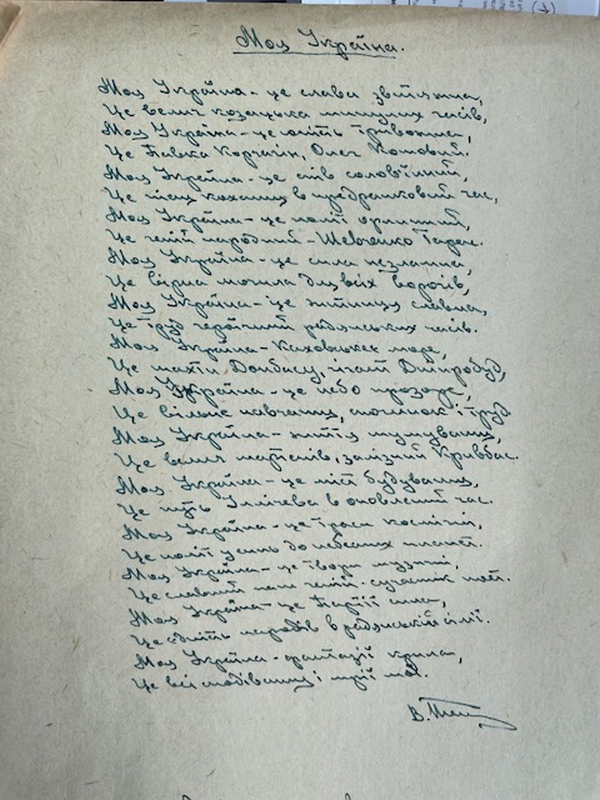 Моя Україна.
Моя Україна - це слава звитяжна,
Це велич козацька минулих часів,
Моя Україна - це юність тривожна,
Це Павка Корчагін, Олег Кошовий.
Моя Україна - це спів солов'їний,
Це пісня кохання в предранковий час,
Моя Україна - це політ орлиний,
Це геній народний - Шевченко Тарас.
Моя Україна - це сила незламна,
Це вірна могила для всіх ворогів,
Моя Україна - це житниця славна,
Це труд героїчний радянських часів.
Моя Україна - Каховськеє море,
Це шахти Донбасу, гігант Дніпробуд,
Моя Україна - це небо прозоре,
Це вільне навчання, спочинок і труд
Моя Україна - життя нуртування,
Це велич мартенів, залізний Кривбас.
Моя Україна - це місії будування,
Це путь Іллічева в оновлений час.
Моя Україна - це траси космічні,
Це політ у синь до небесних планет.
Моя Україна - це твори музичні,
Це славний наш геній - сучасник поет.
Моя Україна - це Партії сила,
Це єдність народів в радянській сім'ї.
Моя Україна - фантазії крила,
Це всі сподівання і мрії мої.
В.